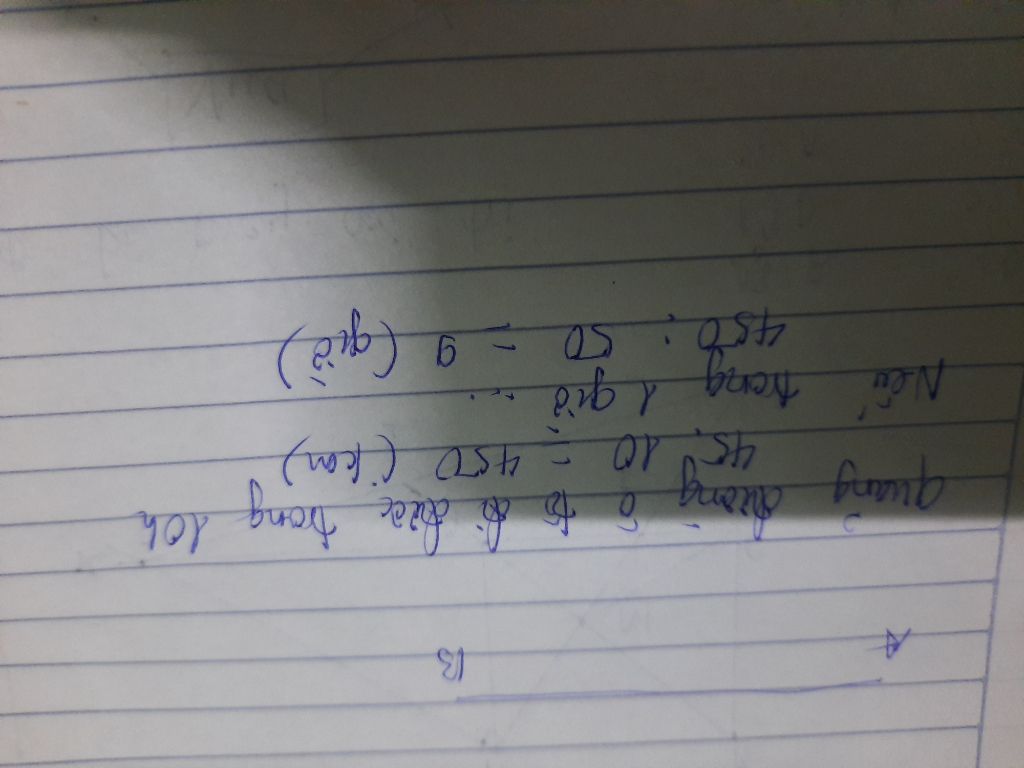 A B
Quãng đường ô tô đi được trong 10h
45. 10 = 450 (km)
Nếu trong 1 giờ ...
450 : 50 = 9 (giờ)